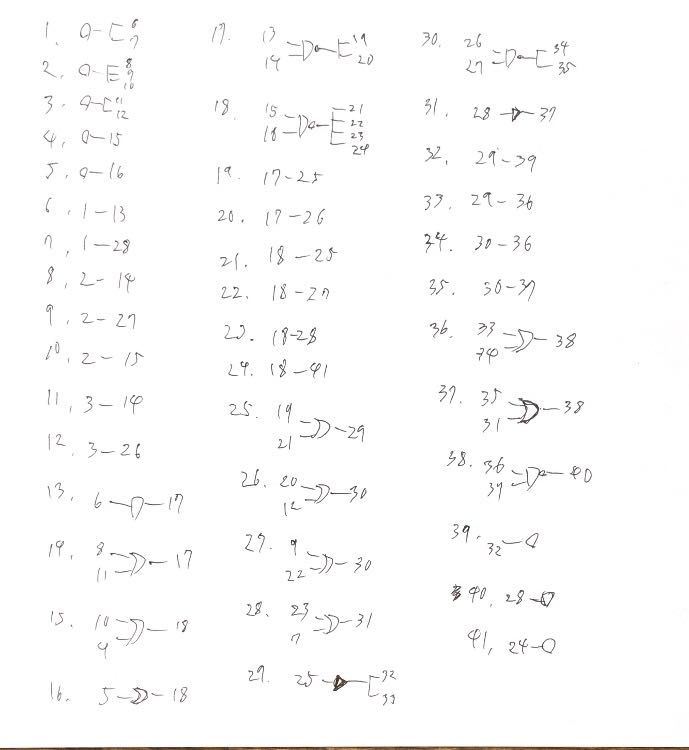 1. 6
7
2. 8
9
10
3. 11
12
4. 15
5. 16
6. 1-13
7. 1-28
8. 2-14
9. 2-27
10. 2-15
11. 3-14
12. 3-26
13. 6 17
14. 8
11 17
15. 10
4 18
16. 5 18
17. 13
14 19
20
18. 15
16 21
22
23
24
19. 17-25
20. 17-26
21. 18-25
22. 18-27
23. 18-28
24. 18-41
25. 19
21 29
26. 20
12 30
27. 9
22 30
28. 23
7 31
29. 25 32
33
30. 26
27 34
35
31. 28 37
32. 29-39
33. 29-36
34. 30-36
35. 30-37
36. 33
34 38
37. 35
31 38
38. 36
37 40
39. 32
40. 28
41. 24